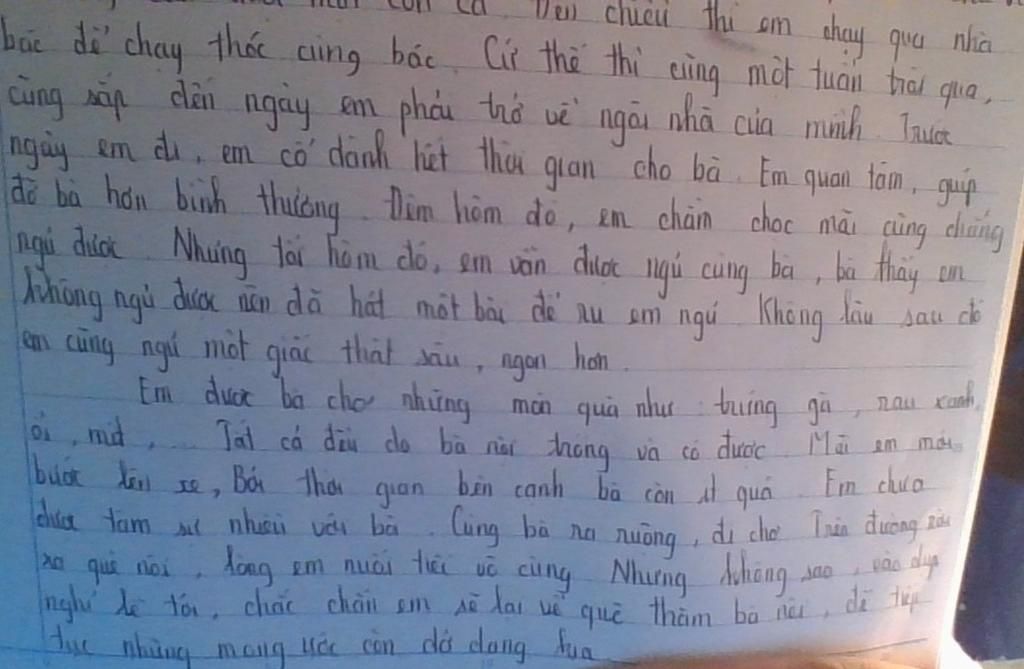 một con cá. Đến chiều thì em chạy qua nhà
bác để chạy thóc cùng bác. Cứ thế thì cũng một tuần trôi qua,
cũng sắp đến ngày em phải trở về ngôi nhà của mình. Trước
ngày em đi, em cố dành hết thời gian cho bà. Em quan tâm, giúp
đỡ bà hơn bình thường. Đêm hôm đó, em chằm chọc mãi cũng chẳng
ngủ được. Nhưng tối hôm đó, em vẫn được ngủ cùng bà, bà thấy em
không ngủ được nên đã hát một bài để ru em ngủ. Không lâu sau đó
em cũng ngủ một giấc thật sâu, ngon hơn.
Em được bà cho những món quà như: trứng gà, rau xanh,
ổi, mít, ... Tất cả đều do bà nội trồng và có được. Mãi em mới
bước lên xe, Bởi thời gian bên cạnh bà còn ít quá. Em chưa
được tâm sự nhiều với bà. Cùng bà ra ruộng, đi chợ. Trên đường
xa quê nội, lòng em nuối tiếc vô cùng. Nhưng không sao, vào dịp
nghỉ lễ tới, chắc chắn em sẽ lại về quê thăm bà nội, để tiếp
tục những mong ước còn dở dang